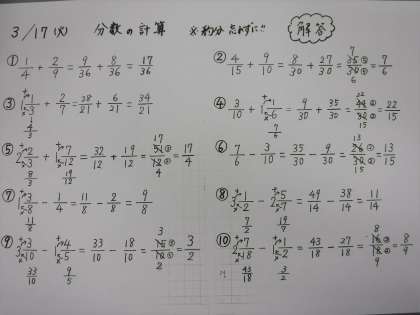 3/17(火) 分数の計算 ※約分忘れずに!! 解答
① 1/4 + 2/9 = 9/36 + 8/36 = 17/36
② 4/15 + 9/10 = 8/30 + 27/30 = 35/30 = 7/6
③ 1 1/3 + 2/7 = 28/21 + 6/21 = 34/21
4/3
④ 3/10 + 1 1/6 = 9/30 + 35/30 = 44/30 = 22/15
7/6
⑤ 2 2/3 + 1 7/12 = 32/12 + 19/12 = 51/12 = 17/4
8/3 19/12
⑥ 7/6 − 3/10 = 35/30 − 9/30 = 26/30 = 13/15
⑦ 1 3/8 − 1/4 = 11/8 − 2/8 = 9/8
11/8
⑧ 3 1/2 − 2 5/7 = 49/14 − 38/14 = 11/14
7/2 19/7
⑨ 3 3/10 − 1 4/5 = 33/10 − 18/10 = 15/10 = 3/2
33/10 9/5
⑩ 2 7/18 − 1 1/2 = 43/18 − 27/18 = 16/18 = 8/9
43/18 3/2